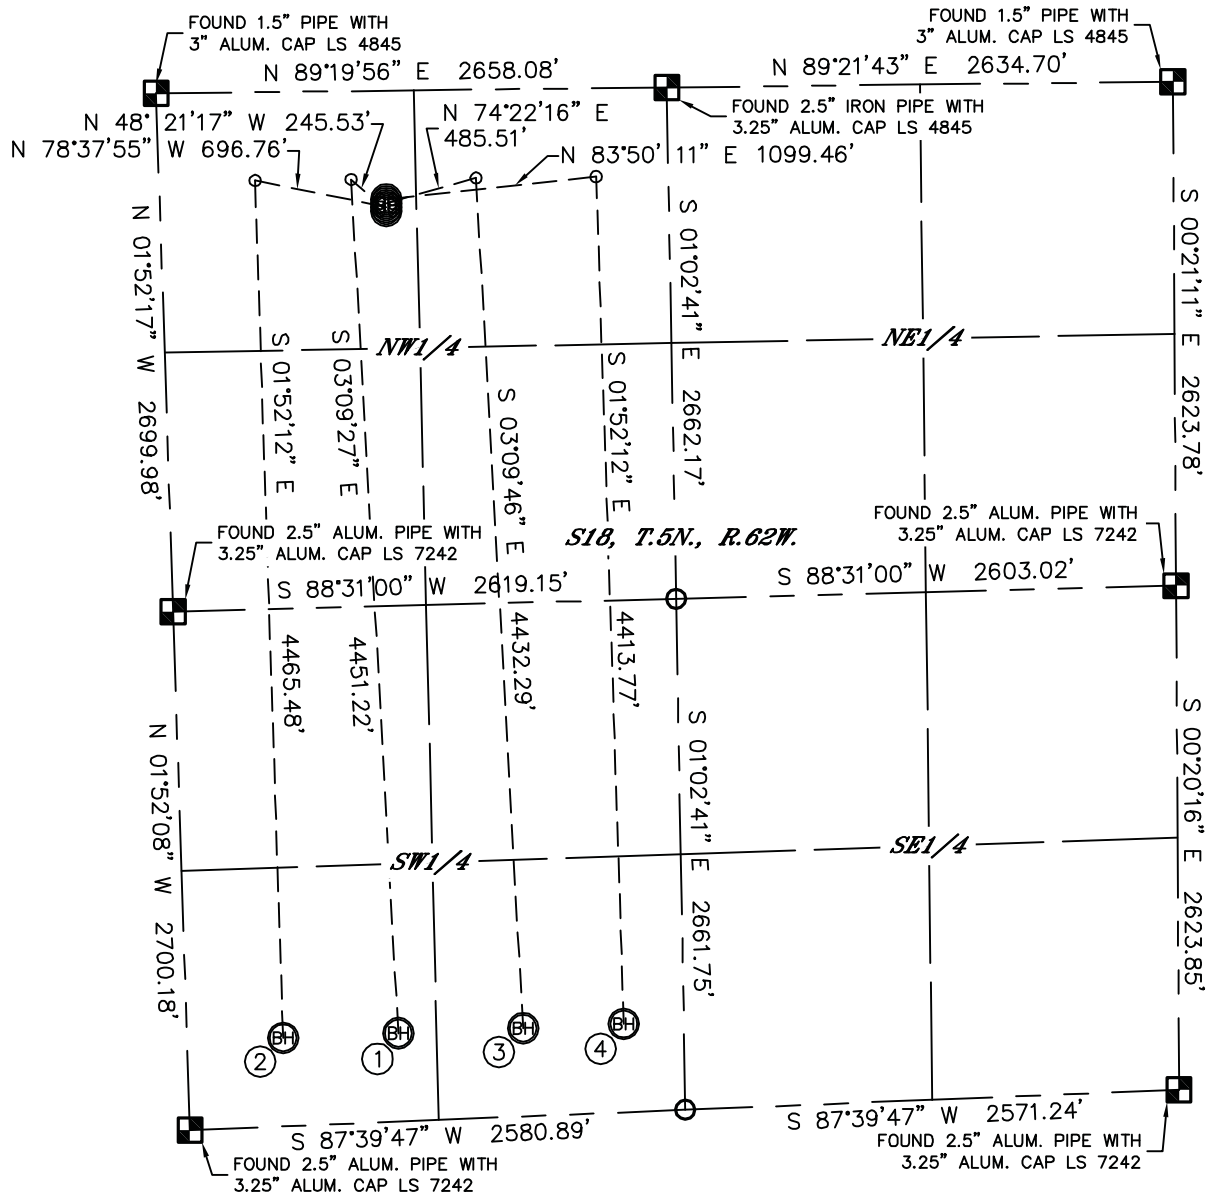 FOUND 1.5" PIPE WITH
3" ALUM. CAP LS 4845
FOUND 1.5" PIPE WITH
3" ALUM. CAP LS 4845
N 89°19'56" E 2658.08'
N 89°21'43" E 2634.70'
FOUND 2.5" IRON PIPE WITH
3.25" ALUM. CAP LS 4845
N 48° 21'17" W 245.53'
N 74°22'16" E
485.51'
N 78°37'55" W 696.76'
N 83°50' 11" E 1099.46'
N 01°52'17" W 2699.98'
S 01°52'12" E
S 03°09'27" E
S 03°09'46" E
S 01°52'12" E
S 01°02'41" E 2662.17'
S 00°21'11" E 2623.78'
NW1/4
NE1/4
FOUND 2.5" ALUM. PIPE WITH
3.25" ALUM. CAP LS 7242
S18, T.5N., R.62W.
FOUND 2.5" ALUM. PIPE WITH
3.25" ALUM. CAP LS 7242
S 88°31'00" W 2619.15'
S 88°31'00" W 2603.02'
4465.48'
4451.22'
4432.29'
4413.77'
N 01°52'08" W 2700.18'
S 01°02'41" E 2661.75'
S 00°20'16" E 2623.85'
SW1/4
SE1/4
BH
BH
BH
BH
2
1
3
4
S 87°39'47" W 2580.89'
S 87°39'47" W 2571.24'
FOUND 2.5" ALUM. PIPE WITH
3.25" ALUM. CAP LS 7242
FOUND 2.5" ALUM. PIPE WITH
3.25" ALUM. CAP LS 7242